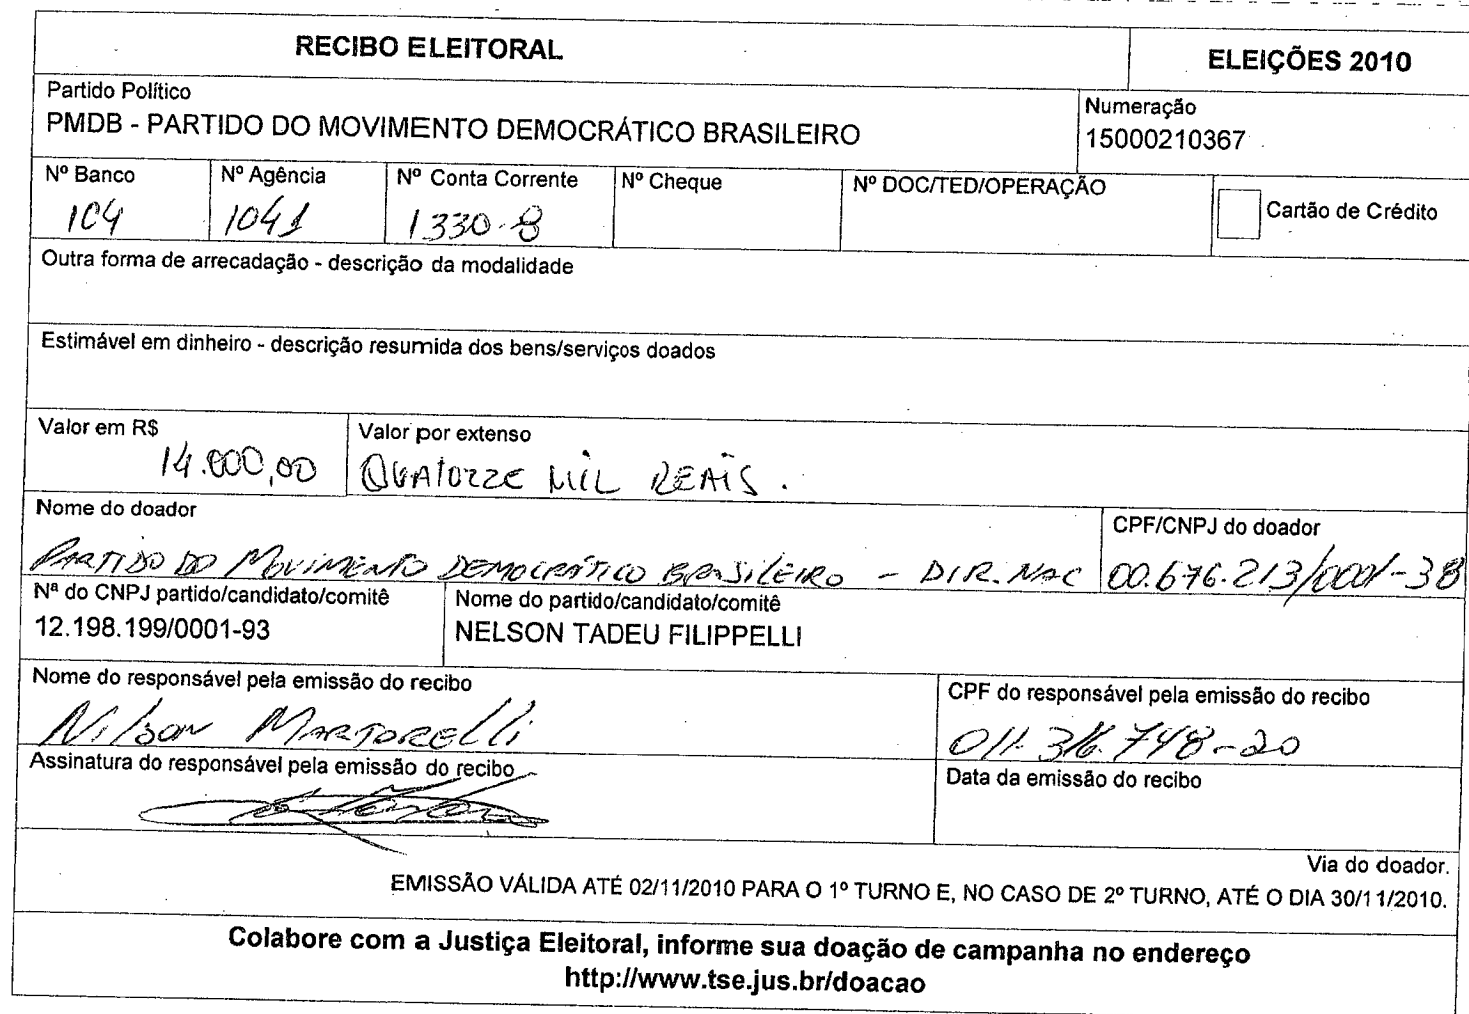 RECIBO ELEITORAL
ELEIÇÕES 2010
Partido Político
PMDB - PARTIDO DO MOVIMENTO DEMOCRÁTICO BRASILEIRO
Numeração
15000210367
Nº Banco
104
Nº Agência
1041
Nº Conta Corrente
1330-8
Nº Cheque
Nº DOC/TED/OPERAÇÃO
Cartão de Crédito
Outra forma de arrecadação - descrição da modalidade
Estimável em dinheiro - descrição resumida dos bens/serviços doados
Valor em R$
14.000,00
Valor por extenso
QUATORZE MIL REAIS.
Nome do doador
PARTIDO DO MOVIMENTO DEMOCRÁTICO BRASILEIRO - DIR. NAC
CPF/CNPJ do doador
00.676.213/0001-38
Nª do CNPJ partido/candidato/comitê
12.198.199/0001-93
Nome do partido/candidato/comitê
NELSON TADEU FILIPPELLI
Nome do responsável pela emissão do recibo
Nilson Martorelli
CPF do responsável pela emissão do recibo
011.316.748-20
Assinatura do responsável pela emissão do recibo
Data da emissão do recibo
Via do doador.
EMISSÃO VÁLIDA ATÉ 02/11/2010 PARA O 1º TURNO E, NO CASO DE 2º TURNO, ATÉ O DIA 30/11/2010.
Colabore com a Justiça Eleitoral, informe sua doação de campanha no endereço
http://www.tse.jus.br/doacao